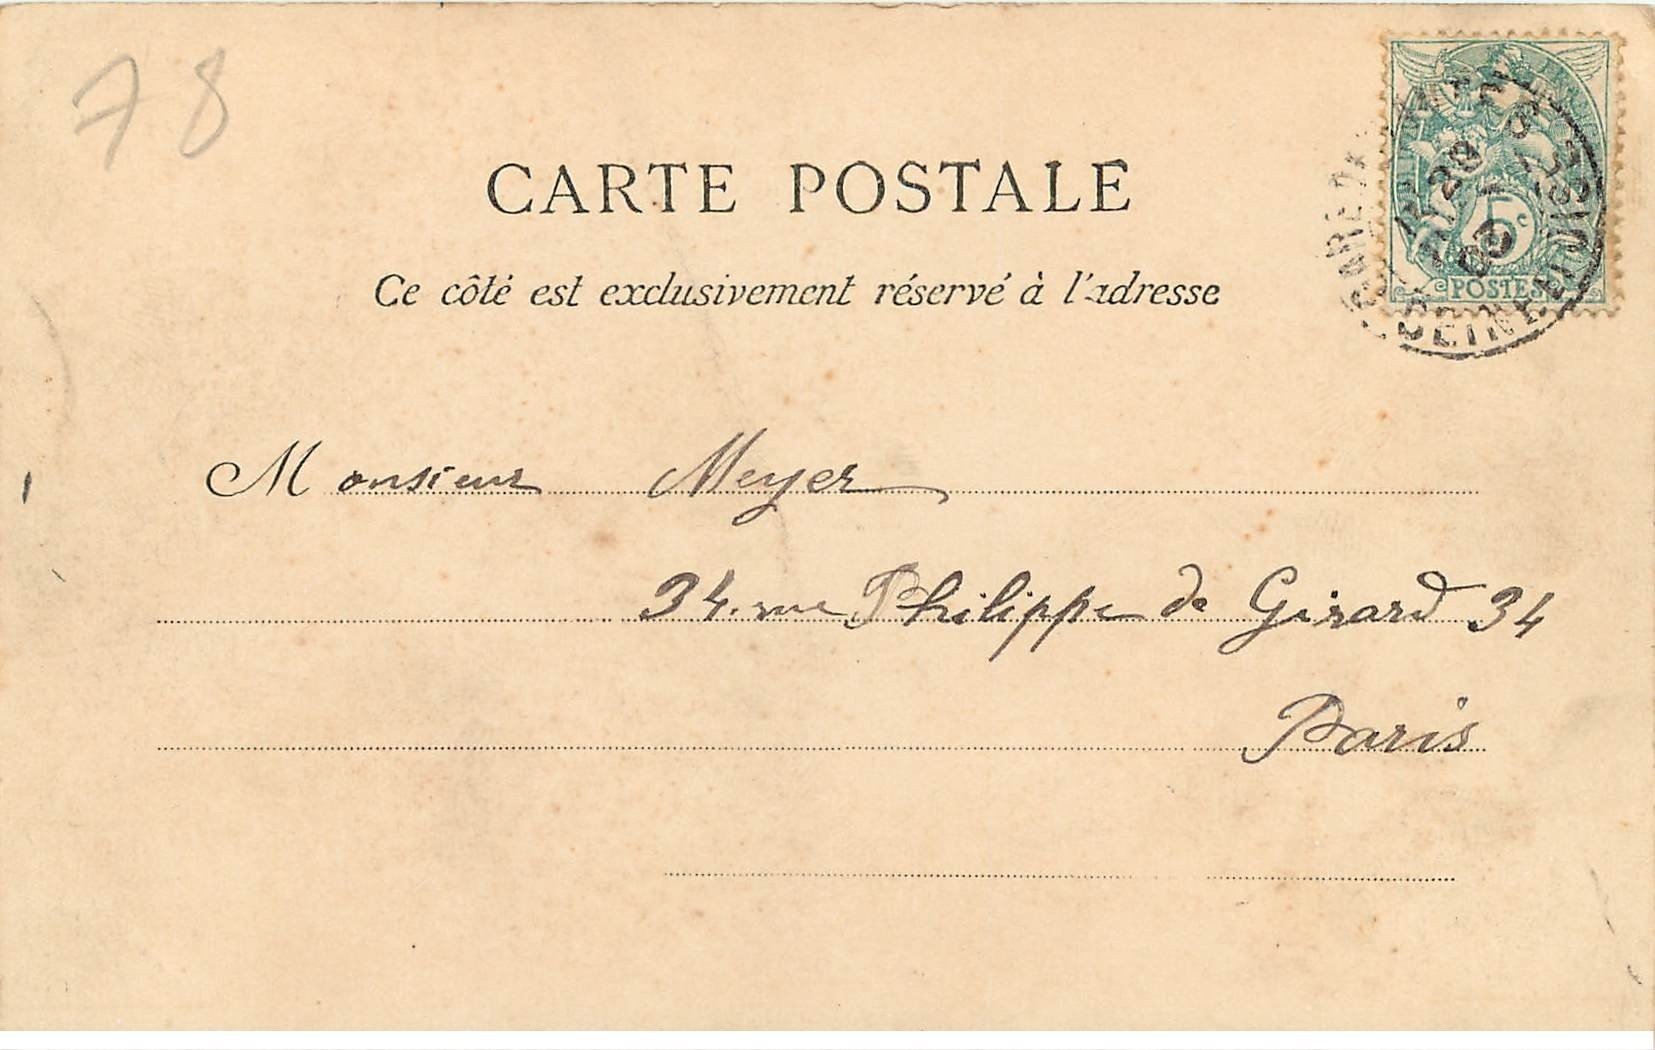 78
CARTE POSTALE
Ce côté est exclusivement réservé à l'adresse
5c
POSTES
20
03
Monsieur Meyer
34. rue Philippe de Girard 34
Paris